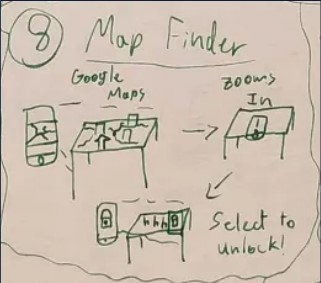 8 Map Finder
Google
Maps
zooms
In
Select to
unlock!